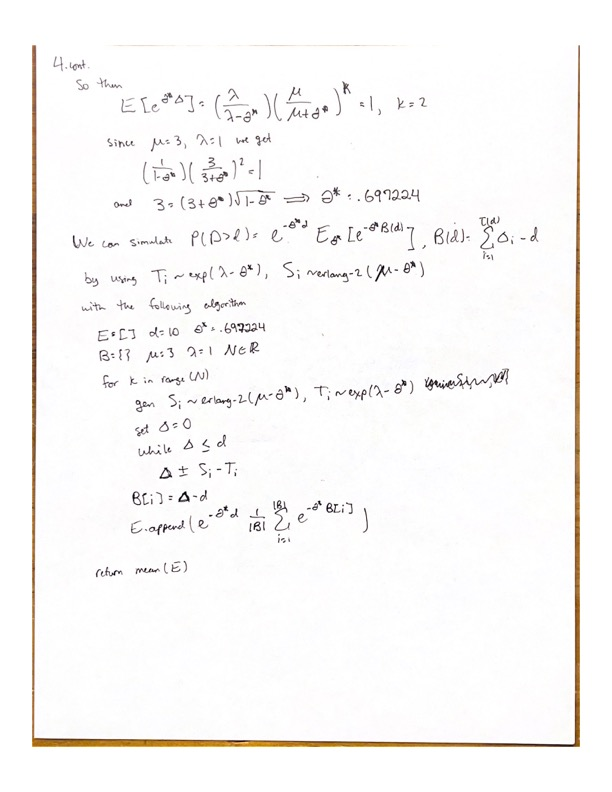 4. cont.
So then
E[e^{θ*Δ}] = (λ/(λ-θ*)) (μ/(μ+θ*))^k = 1, k=2
since μ=3, λ=1 we get
(1/(1-θ*)) (3/(3+θ*))^2 = 1
and 3 = (3+θ*)√(1-θ*) ⟹ θ* = .697224
We can simulate P(D>d) = e^{-θ*d} E_{θ*}[e^{-θ*B(d)}], B(d) = Σ_{i=1}^{τ(d)} Δ_i - d
by using T_i ~ exp(λ-θ*), S_i ~ erlang-2(μ-θ*)
with the following algorithm
E=[] d=10 θ*=.697224
B={} μ=3 λ=1 N∈ℝ
for k in range(N)
gen S_i ~ erlang-2(μ-θ*), T_i ~ exp(λ-θ*)
set Δ=0
while Δ ≤ d
Δ ± S_i - T_i
B[i] = Δ-d
E.append(e^{-θ*d} 1/|B| Σ_{i=1}^{|B|} e^{-θ*B[i]})
return mean(E)